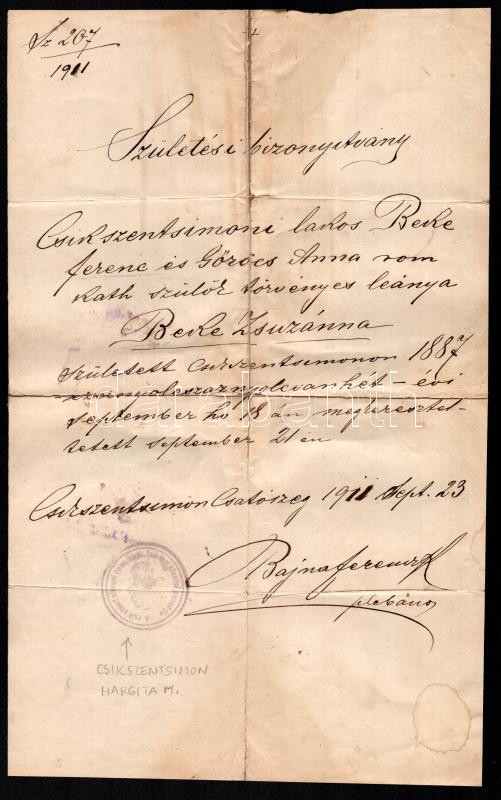 Sz 207
1911
Születési bizonyitvány
Csikszentsimoni lakos Beke
ferenc és Göröcs Anna rom
kath szülők törvényes leánya
Beke Zsuzánna
született Csikszentsimonon 1887
ezernyolcszáznyolcvanhét – évi
september hó 18 án megkeresztel-
tetett september 21 én
Csikszentsimon Csatószeg 1911 Sept. 23
Bajna ferenc
plebános
CSIKSZENTSIMON
HARGITA M.
darabanth